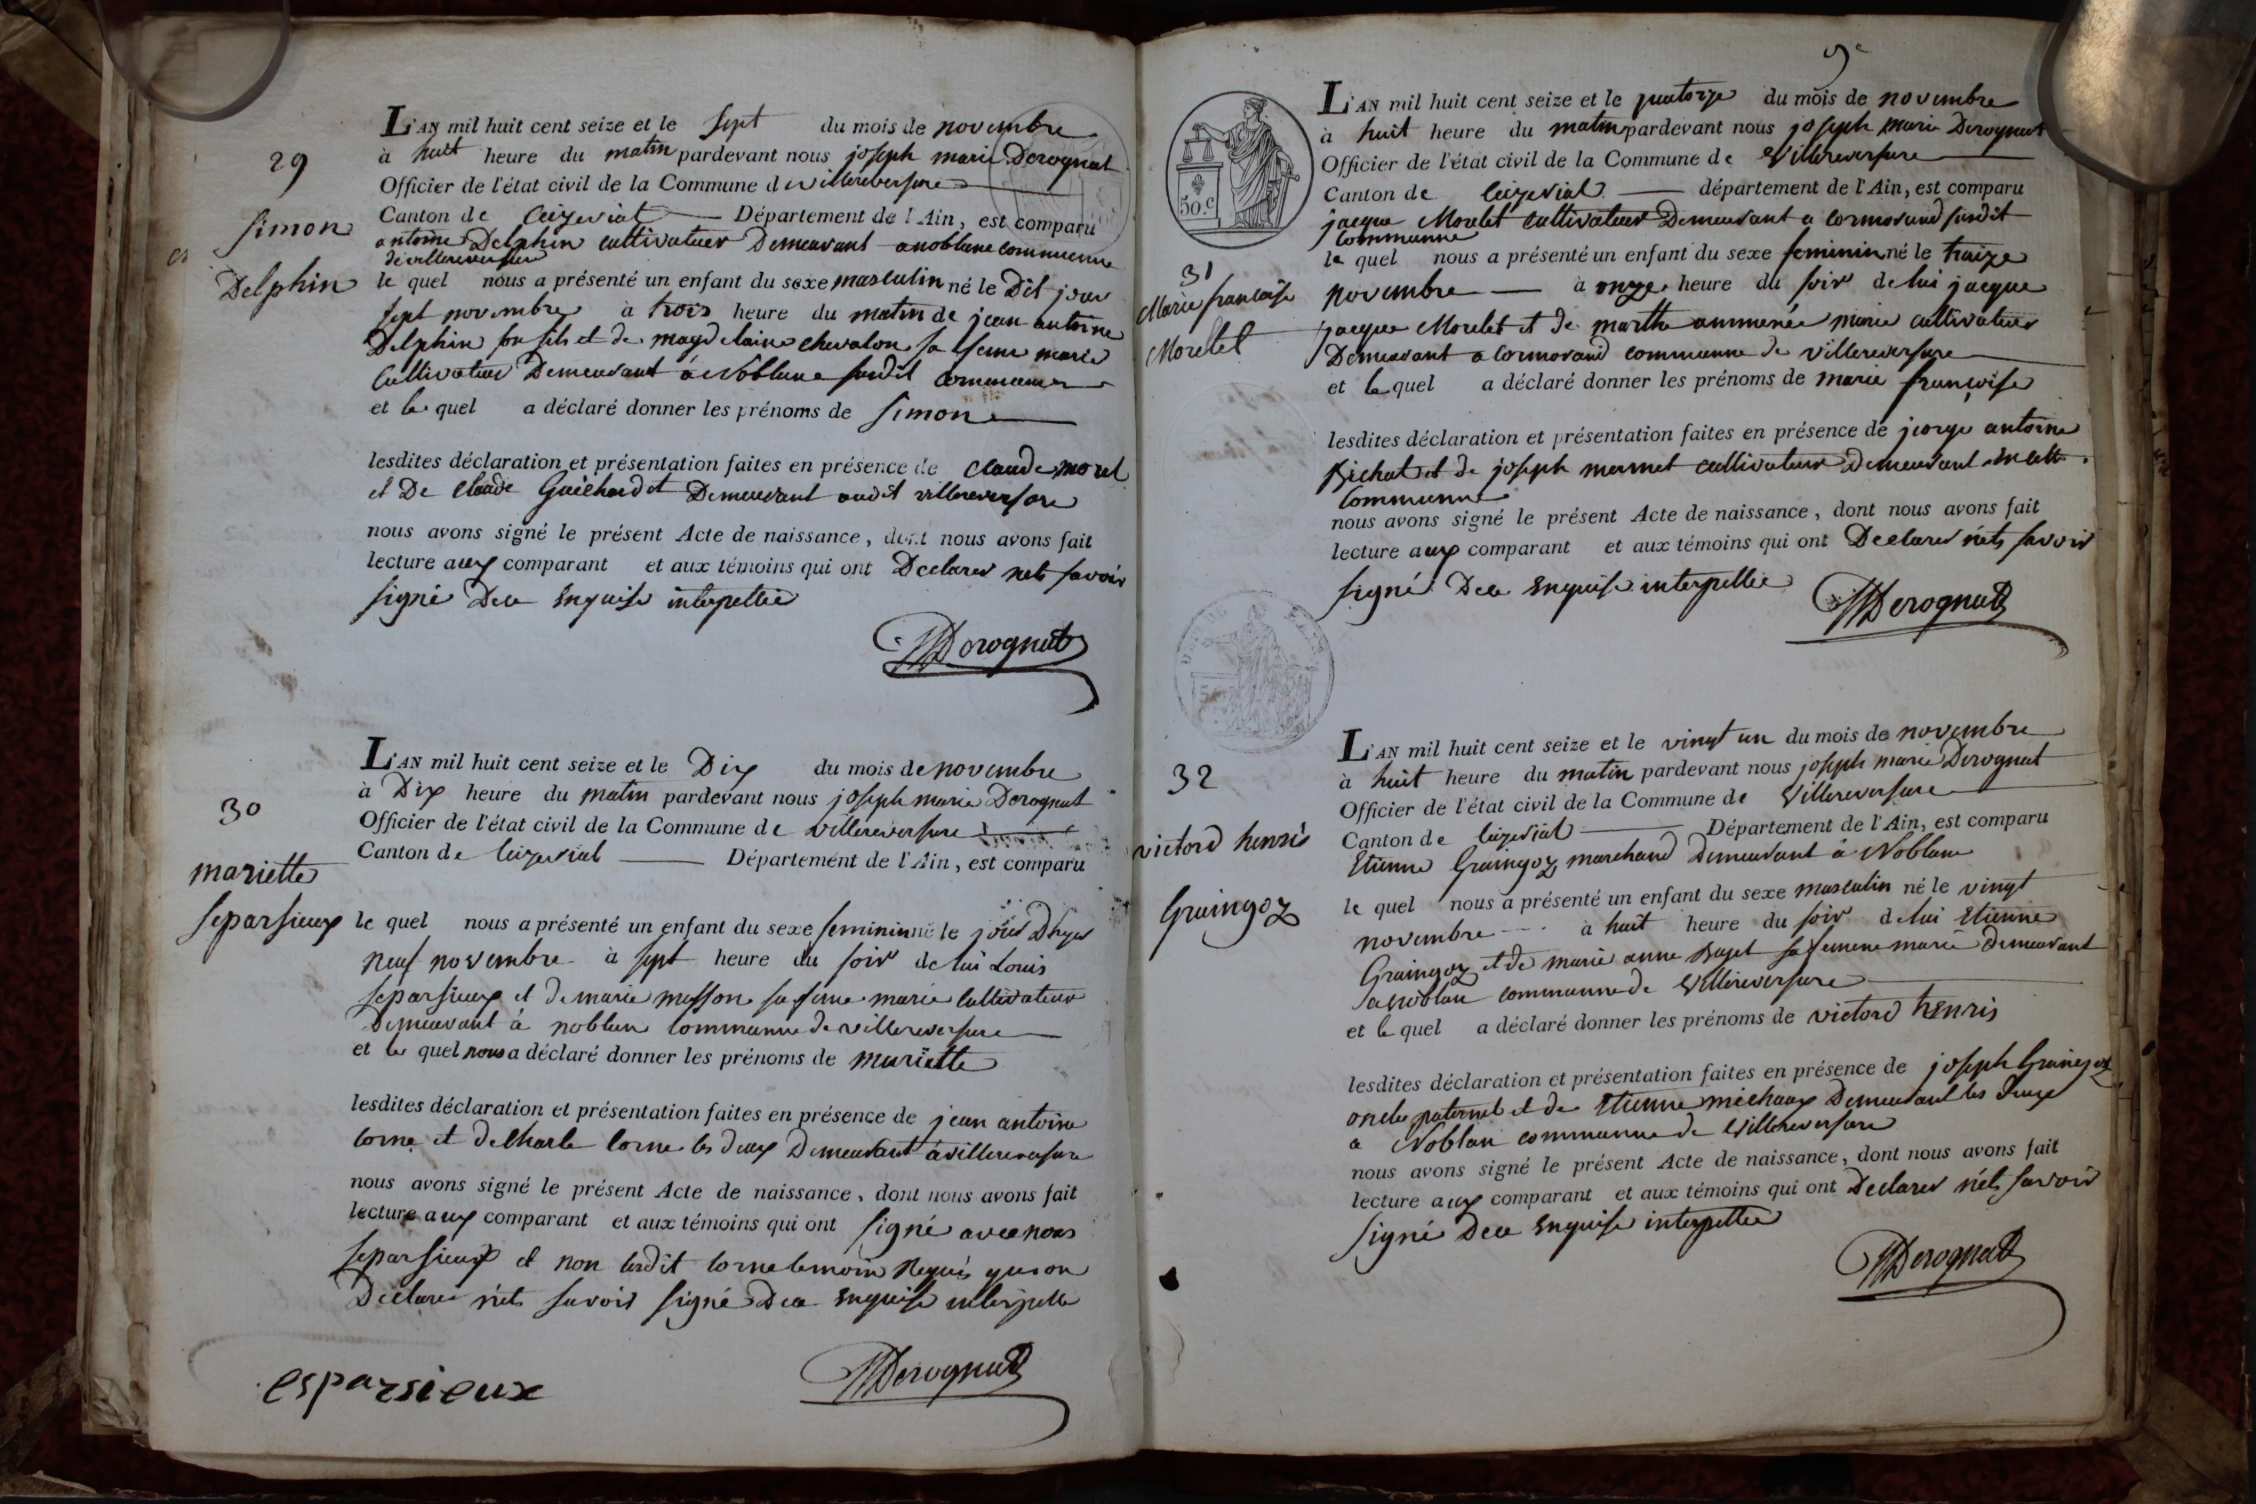 29
Simon
Delphin
L'AN mil huit cent seize et le Sept du mois de novembre
à huit heure du matin pardevant nous joseph marie Derognat
Officier de l'état civil de la Commune de villereversure
Canton de Ceizeriat Département de l'Ain, est comparu
antoine Delphin cultivateur Demeurant a noblane commune
de villereversure
le quel nous a présenté un enfant du sexe masculin né le Dit jour
sept novembre à trois heure du matin de jean antoine
Delphin son fils et de magdelaine chevalon sa feme marié
Cultivateur Demeurant à Noblane susdit commune
et le quel a déclaré donner les prénoms de Simon
lesdites déclaration et présentation faites en présence de Claude morel
et De Claude Guichardet Demeurant audit villereversure
nous avons signé le présent Acte de naissance, dont nous avons fait
lecture aux comparant et aux témoins qui ont Declarer nets savoir
signé De ce Enquise interpellée
JMDerognat
30
mariette
Separsieux
L'AN mil huit cent seize et le Dix du mois de novembre
à Dix heure du matin pardevant nous joseph marie Derognat
Officier de l'état civil de la Commune de villereversure
Canton de Ceizeriat Département de l'Ain, est comparu
le quel nous a présenté un enfant du sexe feminin né le jour Dhyer
neuf novembre à sept heure du soir de lui Louis
Separsieux et de marie musson sa feme marié Cultivateur
Demeurant à noblan Commune de villereversure
et le quel nous a déclaré donner les prénoms de mariette
lesdites déclaration et présentation faites en présence de jean antoine
Corne et de Charle Corne les deux Demeurant à villereversure
nous avons signé le présent Acte de naissance, dont nous avons fait
lecture aux comparant et aux témoins qui ont signé avec nous
Separsieux et non lesdit Corne temoin Requis qui on
Déclaré néts savoir signé De ce Enquise interpelle
esparsieux
JMDerognat
9e
50.c
31
Marie francoise
Morelet
L'AN mil huit cent seize et le quatorze du mois de novembre
à huit heure du matin pardevant nous joseph marie Derognat
Officier de l'état civil de la Commune de Villereversure
Canton de Ceizeriat département de l'Ain, est comparu
jacque Morelet cultivateur Demeurant a Cormorand susdit
Commune
le quel nous a présenté un enfant du sexe feminin né le traize
novembre à onze heure du soir de lui jacque
jacque Morelet et de marthe ammenée marié cultivateur
Demeurant a Cormorand commune de villereversure
et le quel a déclaré donner les prénoms de marie françoise
lesdites déclaration et présentation faites en présence de jeorge antoine
Bichat et de joseph mermet cultivateur demeurant en cette
Commune
nous avons signé le présent Acte de naissance, dont nous avons fait
lecture aux comparant et aux témoins qui ont Declarer néts savoir
signé De ce Enquise interpellée
JMDerognat
32
victord henris
Graingoz
L'AN mil huit cent seize et le vingt un du mois de novembre
à huit heure du matin pardevant nous joseph marie Derognat
Officier de l'état civil de la Commune de Villereversure
Canton de Ceizeriat Département de l'Ain, est comparu
Etienne Graingoz marchand Demeurant à Noblan
le quel nous a présenté un enfant du sexe masculin né le vingt
novembre à huit heure du soir de lui Etienne
Graingoz et de marie anne Bajet sa femme marié demeurant
a Noblan commune de Villereversure
et le quel a déclaré donner les prénoms de victord henris
lesdites déclaration et présentation faites en présence de joseph Graingoz
oncle paternel et de Etienne michaux Demeurant les Deux
a Noblan commune de Villereversure
nous avons signé le présent Acte de naissance, dont nous avons fait
lecture aux comparant et aux témoins qui ont Declarer néts savoir
signé De ce Enquise interpellée
JMDerognat